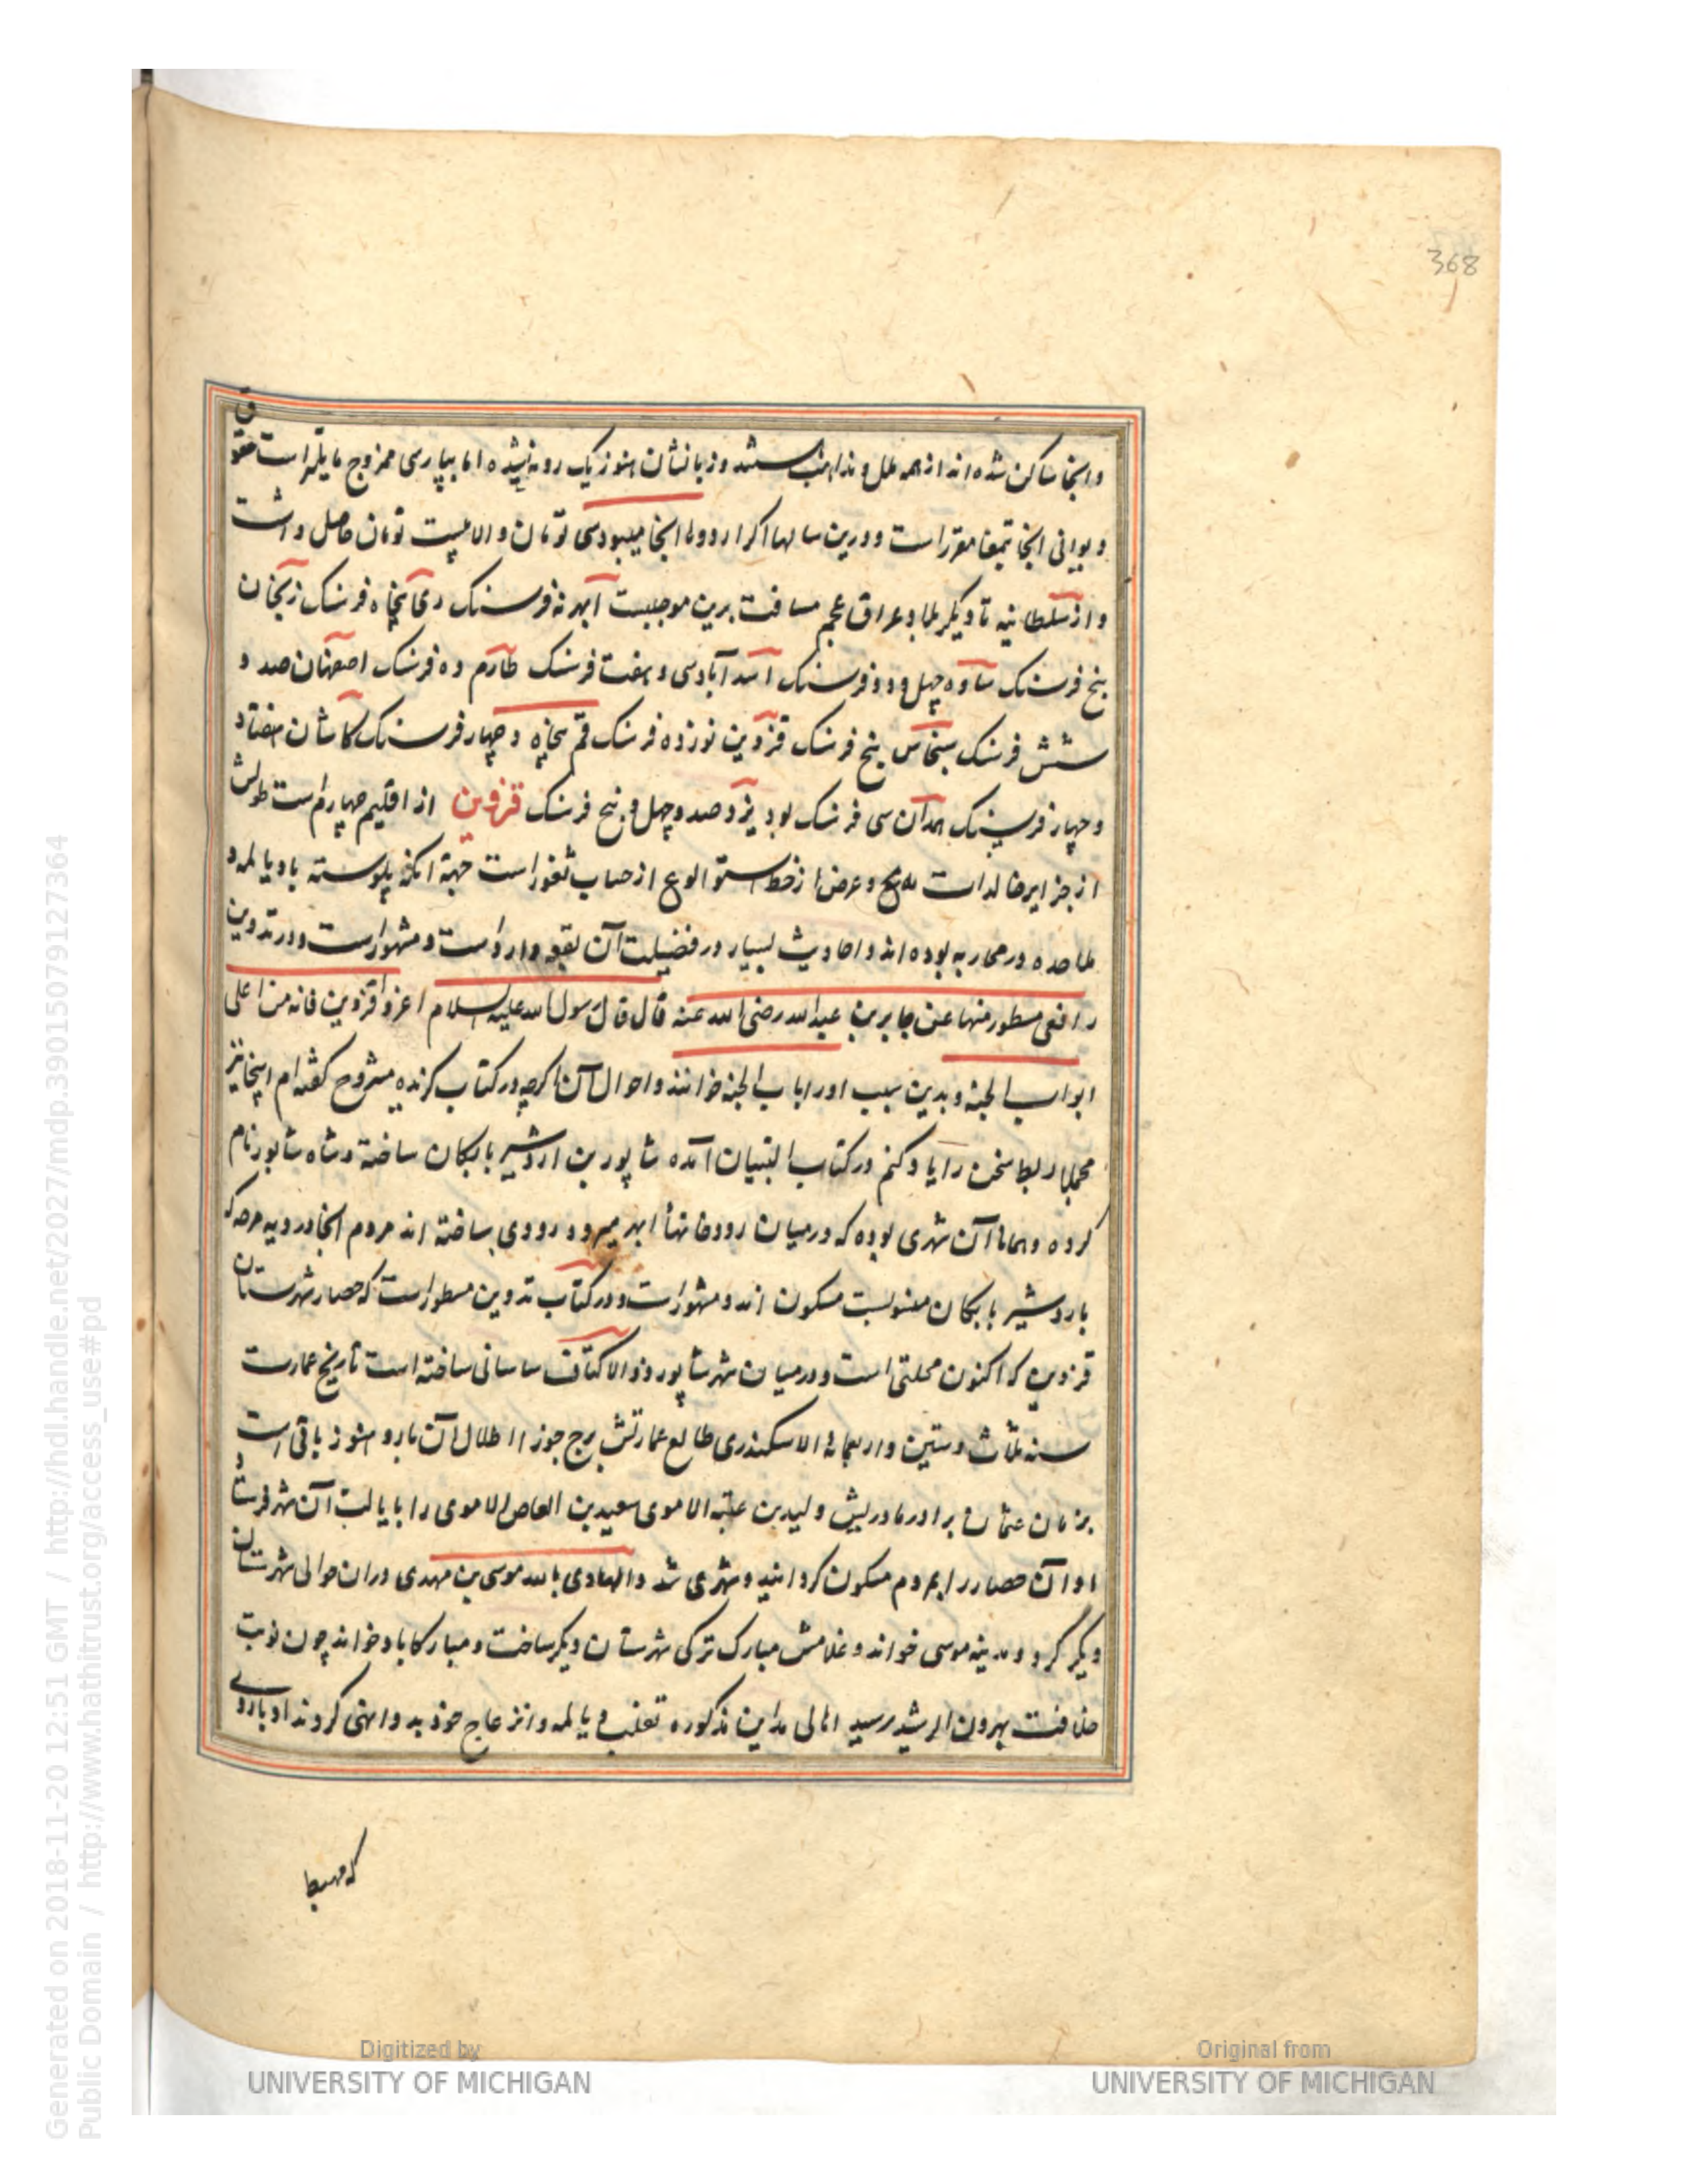 368
وانجا ساکن شده اند از همه ملل و مذاهب هستند و زبانشان هنوز یک رویه نشده اما بپارسی ممزوج مایلتر است حقوق
دیوانی انجا بتمغا مقرر است و درین سالها اکر اردوها انجا میبود سی تومان و الا بیست تومان حاصل داشت
و از سلطانیه تا دیکر بلاد عراق عجم مسافت برین موجبست ابهر نه فرسنک ری پنجاه فرسنک زنجان
پنج فرسنک ساوه چهل و دو فرسنک اسدآباد سی و هفت فرسنک طارم ده فرسنک اصفهان صد و
شش فرسنک سجاس پنج فرسنک قزوین نوزده فرسنک قم پنجاه و چهار فرسنک کاشان هفتاد
و چهار فرسنک همدان سی فرسنک بود یزد صد و چهل و پنج فرسنک قزوین از اقلیم چهارم است طولش
از جزایر خالدات و عرض از خط استوا از حساب ثغور است جهة انکه پیوسته با دیالمه و
ملاحده در محاربه بوده اند و احادیث بسیار در فضیلت آن بقعه وارد است و مشهور است و در تدوین
رافعی مسطور منها عن جابر بن عبدالله رضی الله عنه قال قال رسول الله علیه السلام اغزوا قزوین فانه من اعلی
ابواب الجنه و بدین سبب اورا باب الجنه خوانند و احوال آن اکرچه در کتاب کزیده مشروح کفته ام اینجا نیز
مجملا ربط سخن را یاد کنم در کتاب التبیان آمده شاپور بن اردشیر بابکان ساخته و شاه شاپور نام
کرده و همانا آن شهری بوده که در میان رودخانهأ ابهر میرود و رودی ساخته اند مردم انجا در دیه سرجه که
باردشیر بابکان منسوبست مسکون اند و مشهور است و در کتاب تدوین مسطور است که حصار شهرستان
قزوین که اکنون محلتی است و در میان شهر شاپور ذو الاکتاف ساسانی ساخته است تاریخ عمارت
سنه ثلاث و ستین و اربعمائه الاسکندری طالع عمارتش برج جوزا اطلال آن بارو هنوز باقی است و
بزمان عثمان برادر مادریش ولید بن عتبه الاموی سعید بن العاص الاموی را بایالت آن شهر فرستاد
او آن حصار را بمردم مسکون کردانید و شهری شد و الهادی بالله موسی بن مهدی در ان حوالی شهرستان
دیکر کرد و مدینه موسی خواند و غلامش مبارک ترکی شهرستان دیکر ساخت و مبارکاباد خواند چون نوبت
خلافت بهرون الرشید رسید اهالی مداین مذکوره تغلب دیالمه و انزعاج خود بدو انهی کردند او باروی
که مهیط
Generated on 2018-11-20 12:51 GMT / http://hdl.handle.net/2027/mdp.39015079127364
Public Domain / http://www.hathitrust.org/access_use#pd
Digitized by
UNIVERSITY OF MICHIGAN
Original from
UNIVERSITY OF MICHIGAN